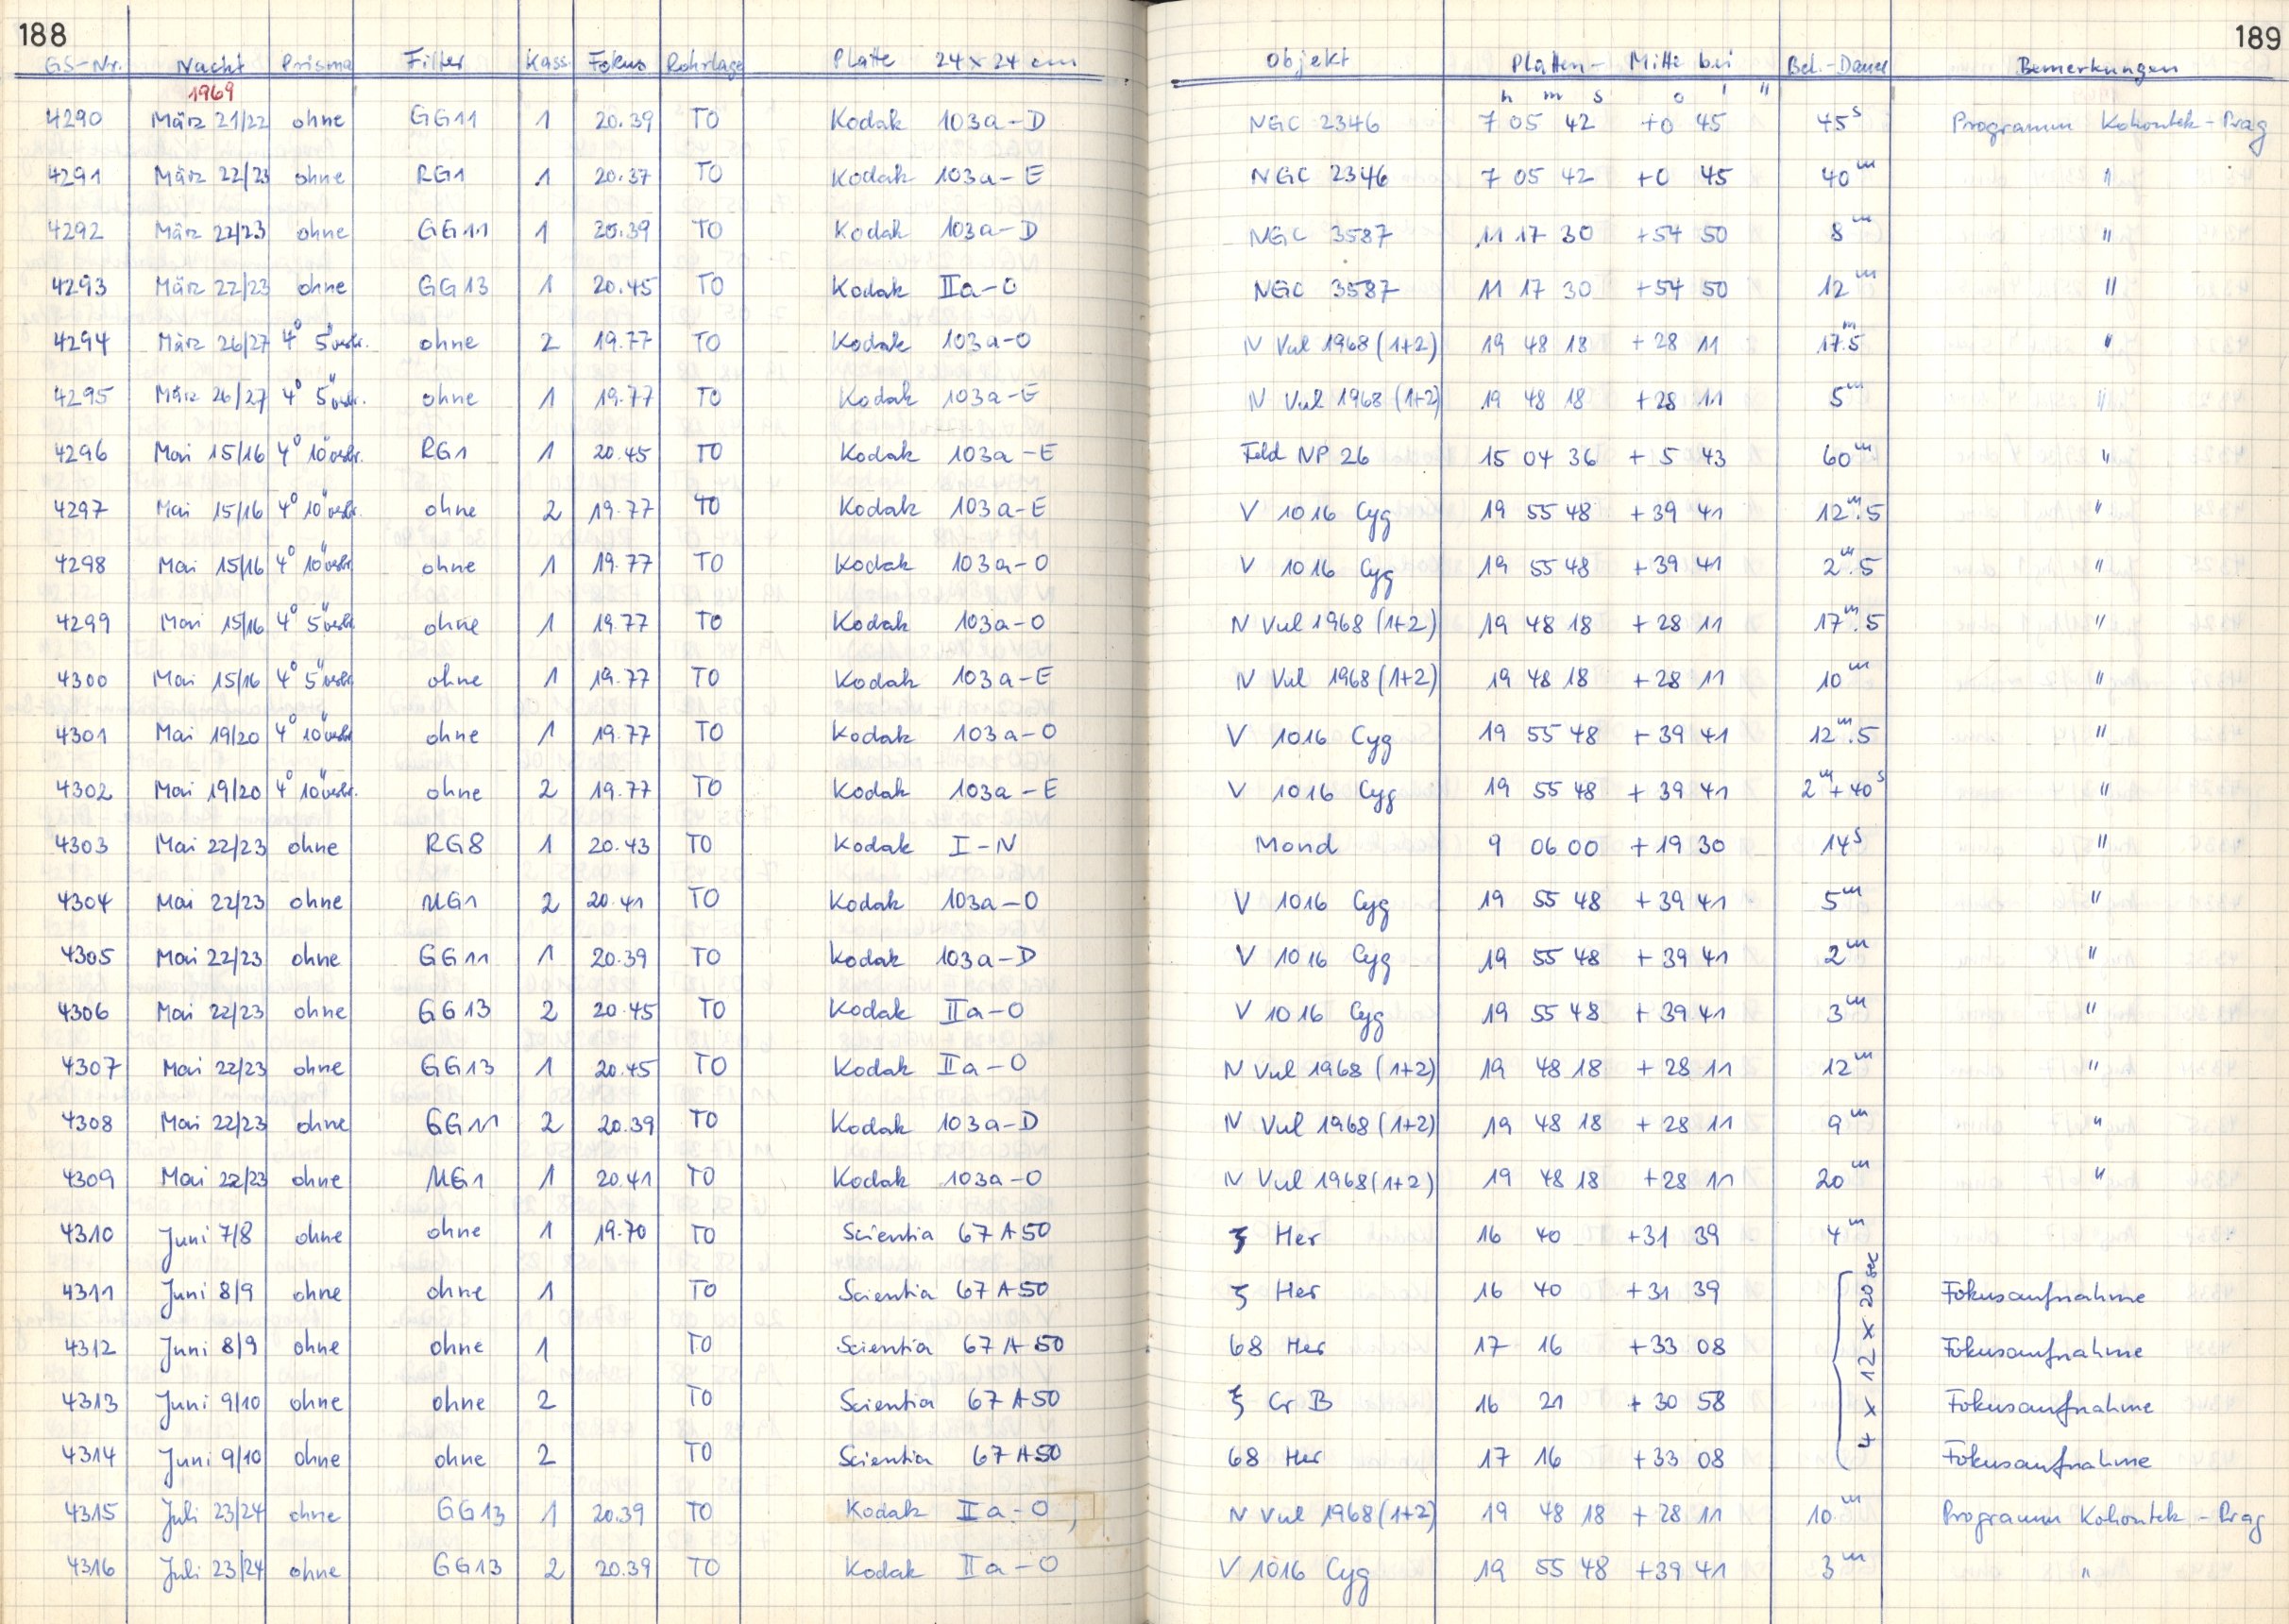 188
189
GS-Nr. Nacht Prisma Filter Kass. Fokus Rohrlage Platte 24 x 24 cm Objekt Platten- Mitte bei Bel.-Dauer Bemerkungen
1969 h m s o ' "
4290 März 21/22 ohne GG11 1 20.39 TO Kodak 103a-D NGC 2346 7 05 42 +0 45 45s Programm Kohoutek-Prag
4291 März 22/23 ohne RG1 1 20.37 TO Kodak 103a-E NGC 2346 7 05 42 +0 45 40m "
4292 März 22/23 ohne GG11 1 20.39 TO Kodak 103a-D NGC 3587 11 17 30 +54 50 8m "
4293 März 22/23 ohne GG13 1 20.45 TO Kodak IIa-O NGC 3587 11 17 30 +54 50 12m "
4294 März 26/27 4° 5" verbr. ohne 2 19.77 TO Kodak 103a-O N Vul 1968 (1+2) 19 48 18 +28 11 17m.5 "
4295 März 26/27 4° 5" verbr. ohne 1 19.77 TO Kodak 103a-E N Vul 1968 (1+2) 19 48 18 +28 11 5m "
4296 Mai 15/16 4° 10" verbr. RG1 1 20.45 TO Kodak 103a-E Feld NP 26 15 04 36 +5 43 60m "
4297 Mai 15/16 4° 10" verbr. ohne 2 19.77 TO Kodak 103a-E V 1016 Cyg 19 55 48 +39 41 12m.5 "
4298 Mai 15/16 4° 10" verbr. ohne 1 19.77 TO Kodak 103a-O V 1016 Cyg 19 55 48 +39 41 2m.5 "
4299 Mai 15/16 4° 5" verbr. ohne 1 19.77 TO Kodak 103a-O N Vul 1968 (1+2) 19 48 18 +28 11 17m.5 "
4300 Mai 15/16 4° 5" verbr. ohne 1 19.77 TO Kodak 103a-E N Vul 1968 (1+2) 19 48 18 +28 11 10m "
4301 Mai 19/20 4° 10" verbr. ohne 1 19.77 TO Kodak 103a-O V 1016 Cyg 19 55 48 +39 41 12m.5 "
4302 Mai 19/20 4° 10" verbr. ohne 2 19.77 TO Kodak 103a-E V 1016 Cyg 19 55 48 +39 41 2m+40s "
4303 Mai 22/23 ohne RG8 1 20.43 TO Kodak I-N Mond 9 06 00 +19 30 14s "
4304 Mai 22/23 ohne UG1 2 20.41 TO Kodak 103a-O V 1016 Cyg 19 55 48 +39 41 5m "
4305 Mai 22/23 ohne GG11 1 20.39 TO Kodak 103a-D V 1016 Cyg 19 55 48 +39 41 2m "
4306 Mai 22/23 ohne GG13 2 20.45 TO Kodak IIa-O V 1016 Cyg 19 55 48 +39 41 3m "
4307 Mai 22/23 ohne GG13 1 20.45 TO Kodak IIa-O N Vul 1968 (1+2) 19 48 18 +28 11 12m "
4308 Mai 22/23 ohne GG11 2 20.39 TO Kodak 103a-D N Vul 1968 (1+2) 19 48 18 +28 11 9m "
4309 Mai 22/23 ohne UG1 1 20.41 TO Kodak 103a-O N Vul 1968 (1+2) 19 48 18 +28 11 20m "
4310 Juni 7/8 ohne ohne 1 19.70 TO Scientia 67 A 50 ζ Her 16 40 +31 39 4m
4311 Juni 8/9 ohne ohne 1 TO Scientia 67 A 50 ζ Her 16 40 +31 39 4 x 12 x 20 sec Fokusaufnahme
4312 Juni 8/9 ohne ohne 1 TO Scientia 67 A 50 68 Her 17 16 +33 08 Fokusaufnahme
4313 Juni 9/10 ohne ohne 2 TO Scientia 67 A 50 ξ Cr B 16 21 +30 58 Fokusaufnahme
4314 Juni 9/10 ohne ohne 2 TO Scientia 67 A 50 68 Her 17 16 +33 08 Fokusaufnahme
4315 Juli 23/24 ohne GG13 1 20.39 TO Kodak IIa-O N Vul 1968 (1+2) 19 48 18 +28 11 10m Programm Kohoutek-Prag
4316 Juli 23/24 ohne GG13 2 20.39 TO Kodak IIa-O V 1016 Cyg 19 55 48 +39 41 3m "